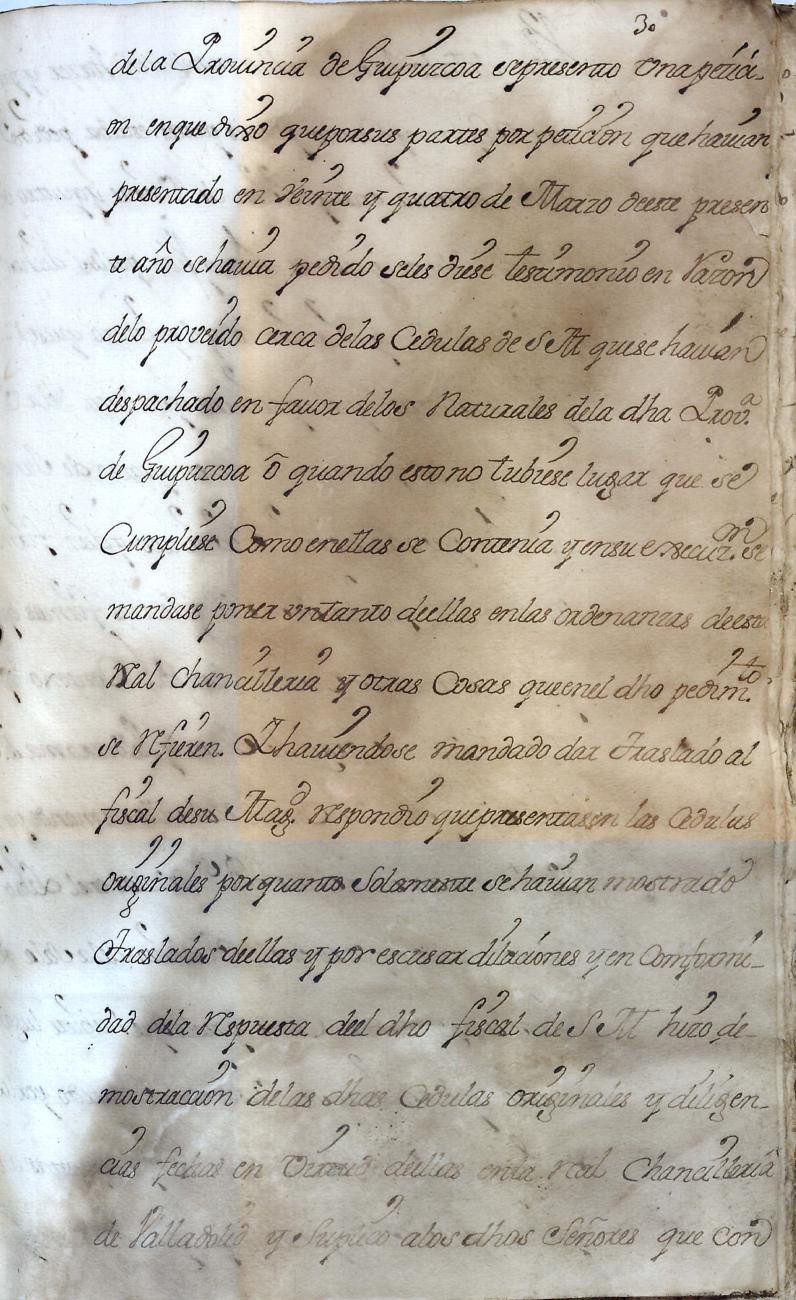 30
dela Provincia de Guipuzcoa sepresento Una petici-
on enque dixo queporsus partes por peticion que havian
presentado en Veinte y quatro de Marzo deeste presen
te año sehavia pedido seles diese testimonio en Razon
delo proveido cerca delas Cedulas de S M quese havian
despachado en favor delos Naturales dela dha Prov.a
de Guipuzcoa ô quando esto no tubiese lugar que se
Cumpliese Como enellas se Contenia y ensu execuz.on se
mandase poner untanto deellas enlas ordenanzas deesta
Rl Chancilleria y otras Cosas queenel dho pedim.to
se Refieren. I haviendose mandado dar Traslado al
fiscal desu Mag.d Respondio quepresentasen las Cedulas
originales por quanto Solamente sehavian mostrado
Traslados deellas y por escusar dilaciones y en Comformi-
dad dela Respuesta deel dho fiscal de S M hizo de-
mostracion delas dhas Cedulas originales y diligen-
cias fechas en Virtud deellas enla Real Chancilleria
de Valladolid y Suplico alos dhos Señores que con